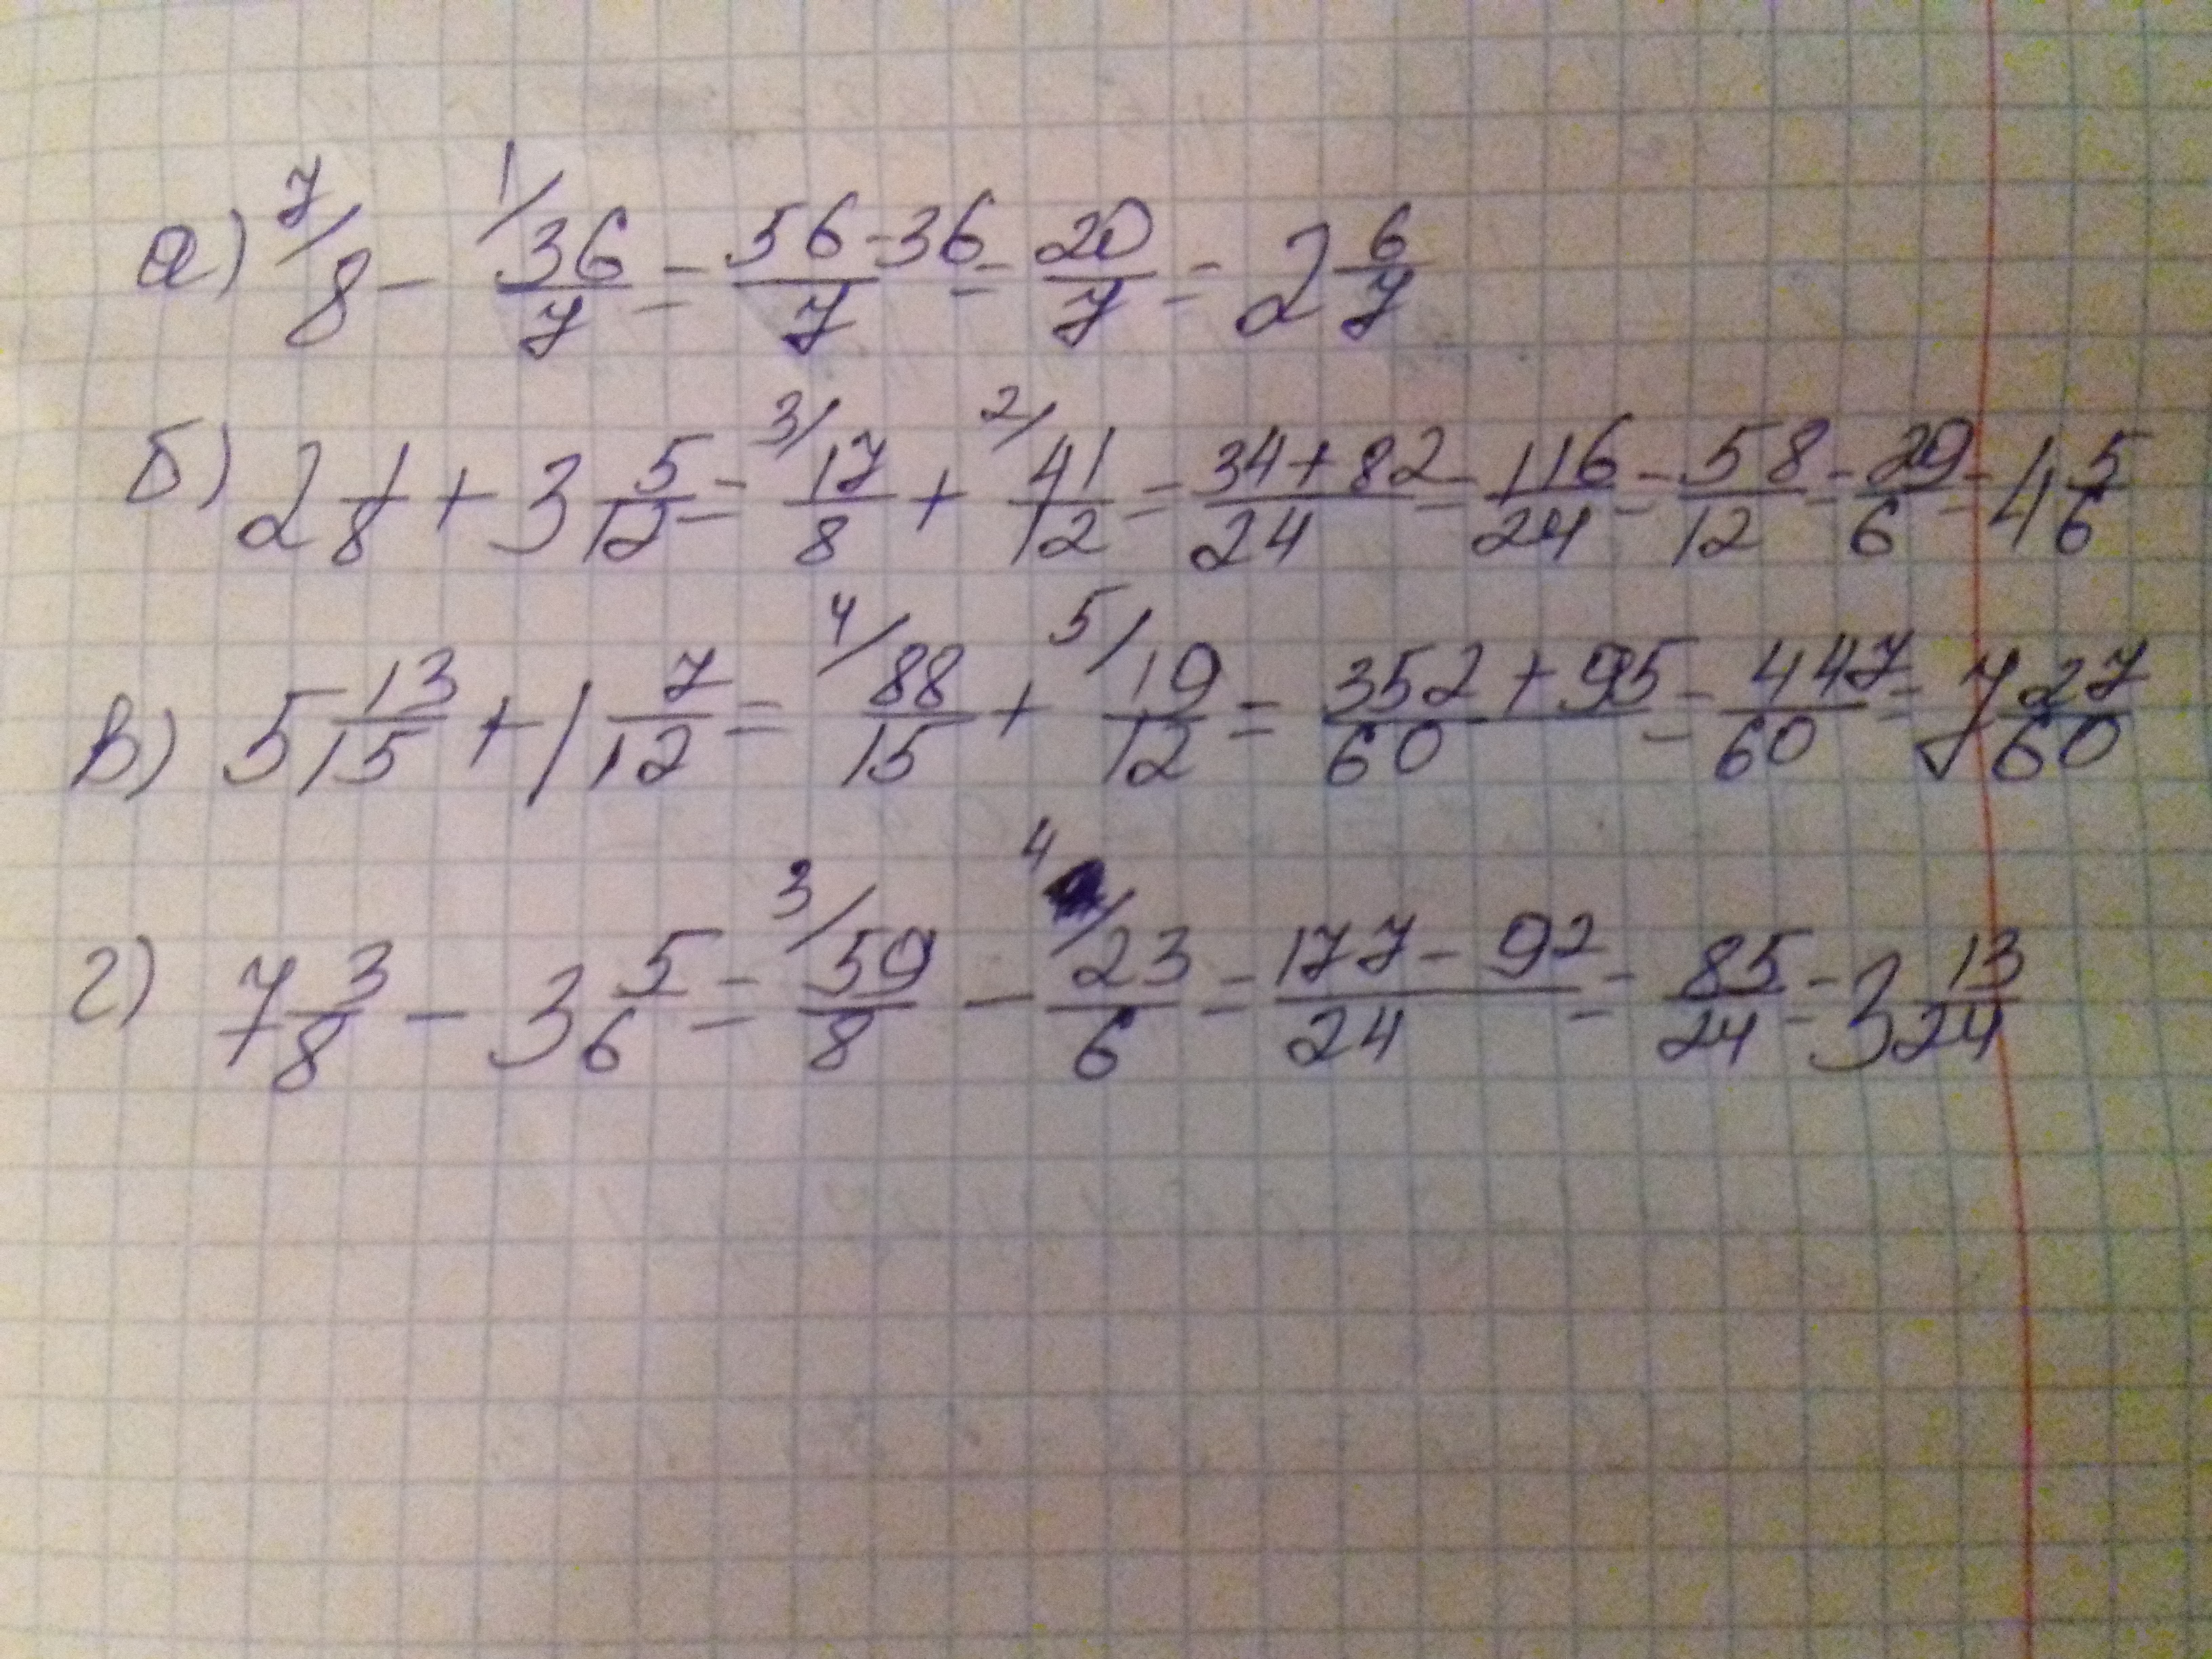 а) ⁷/8 - ¹/36/7 = 56-36/7 = 20/7 = 2 6/7
б) 2 1/8 + 3 5/12 = ³/17/8 + ²/41/12 = 34+82/24 = 116/24 = 58/12 = 29/6 = 4 5/6
в) 5 13/15 + 1 7/12 = ⁴/88/15 + ⁵/19/12 = 352+95/60 = 447/60 = 7 27/60
г) 7 3/8 - 3 5/6 = ³/59/8 - ⁴/23/6 = 177-92/24 = 85/24 = 3 13/24